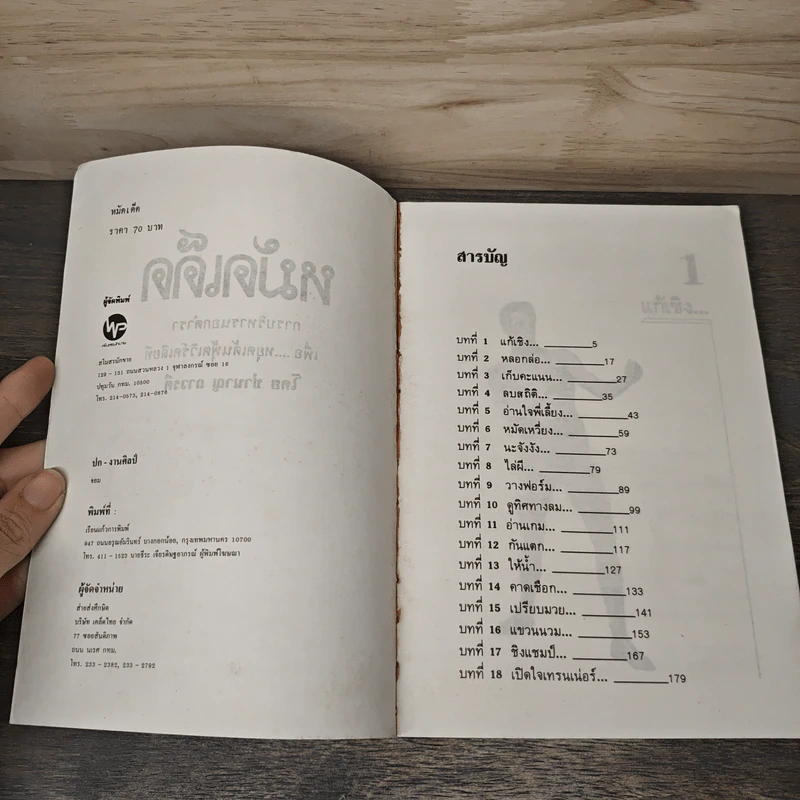 หมัดเด็ด
ราคา 70 บาท
ผู้จัดพิมพ์
สโมสรนักขาย
129 - 131 ถนนสวนหลวง 1 จุฬาลงกรณ์ ซอย 16
ปทุมวัน กทม. 10500
โทร. 214-0573, 214-0676
ปก - งานศิลป์
จอม
พิมพ์ที่ :
เรือนแก้วการพิมพ์
947 ถนนอรุณอัมรินทร์ บางกอกน้อย, กรุงเทพมหานคร 10700
โทร. 411 - 1523 นายธีระ เจียรดิษฐอาภรณ์ ผู้พิมพ์โฆษณา
ผู้จัดจำหน่าย
สายส่งศึกษิต
บริษัท เคล็ดไทย จำกัด
77 ซอยสันติภาพ
ถนน นเรศ กทม.
โทร. 233 - 2382, 233 - 2792
หมัดเด็ด
การบริหารนอกตำรา
เพื่อ...หยุดเส้นฟุตเวิร์คเสียที
โดย ชำนาญ ถาวรดี
สารบัญ
บทที่ 1 แก้เชิง...________5
บทที่ 2 หลอกล่อ...________17
บทที่ 3 เก็บคะแนน...________27
บทที่ 4 ลบสถิติ...________35
บทที่ 5 อ่านใจพี่เลี้ยง...________43
บทที่ 6 หมัดเหวี่ยง...________59
บทที่ 7 นะจังงัง...________73
บทที่ 8 ไล่ผี...________79
บทที่ 9 วางฟอร์ม...________89
บทที่ 10 ดูทิศทางลม...________99
บทที่ 11 อ่านเกม...________111
บทที่ 12 กันแตก...________117
บทที่ 13 ให้น้ำ...________127
บทที่ 14 คาดเชือก...________133
บทที่ 15 เปรียบมวย...________141
บทที่ 16 แขวนนวม...________153
บทที่ 17 ชิงแชมป์...________167
บทที่ 18 เปิดใจเทรนเน่อร์...________179
1
แก้เชิง...